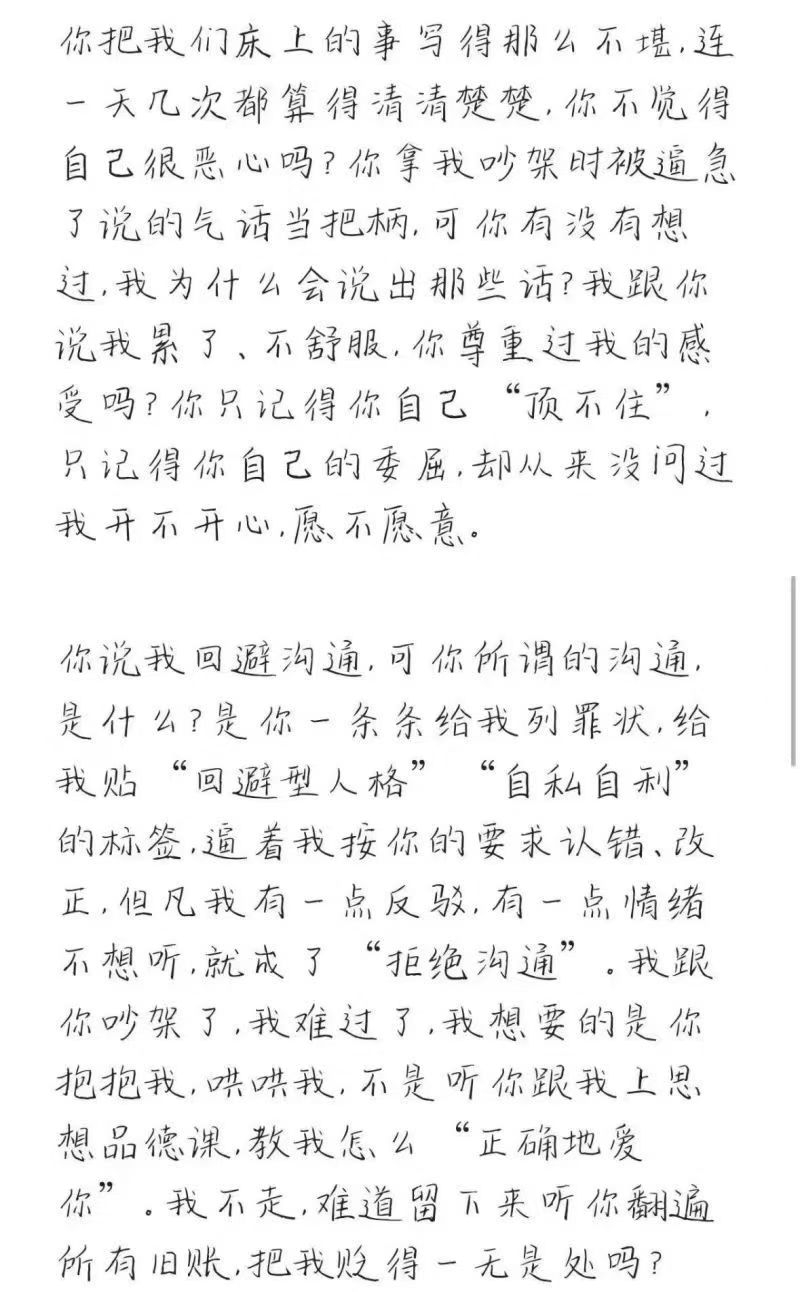 你把我们床上的事写得那么不堪,连
一天几次都算得清清楚楚,你不觉得
自己很恶心吗?你拿我吵架时被逼急
了说的气话当把柄,可你有没有想
过,我为什么会说出那些话?我跟你
说我累了、不舒服,你尊重过我的感
受吗?你只记得你自己“顶不住”,
只记得你自己的委屈,却从来没问过
我开不开心,愿不愿意。
你说我回避沟通,可你所谓的沟通,
是什么?是你一条条给我列罪状,给
我贴“回避型人格”“自私自利”
的标签,逼着我按你的要求认错、改
正,但凡我有一点反驳,有一点情绪
不想听,就成了“拒绝沟通”。我跟
你吵架了,我难过了,我想要的是你
抱抱我,哄哄我,不是听你跟我上思
想品德课,教我怎么“正确地爱
你”。我不走,难道留下来听你翻遍
所有旧账,把我贬得一无是处吗?